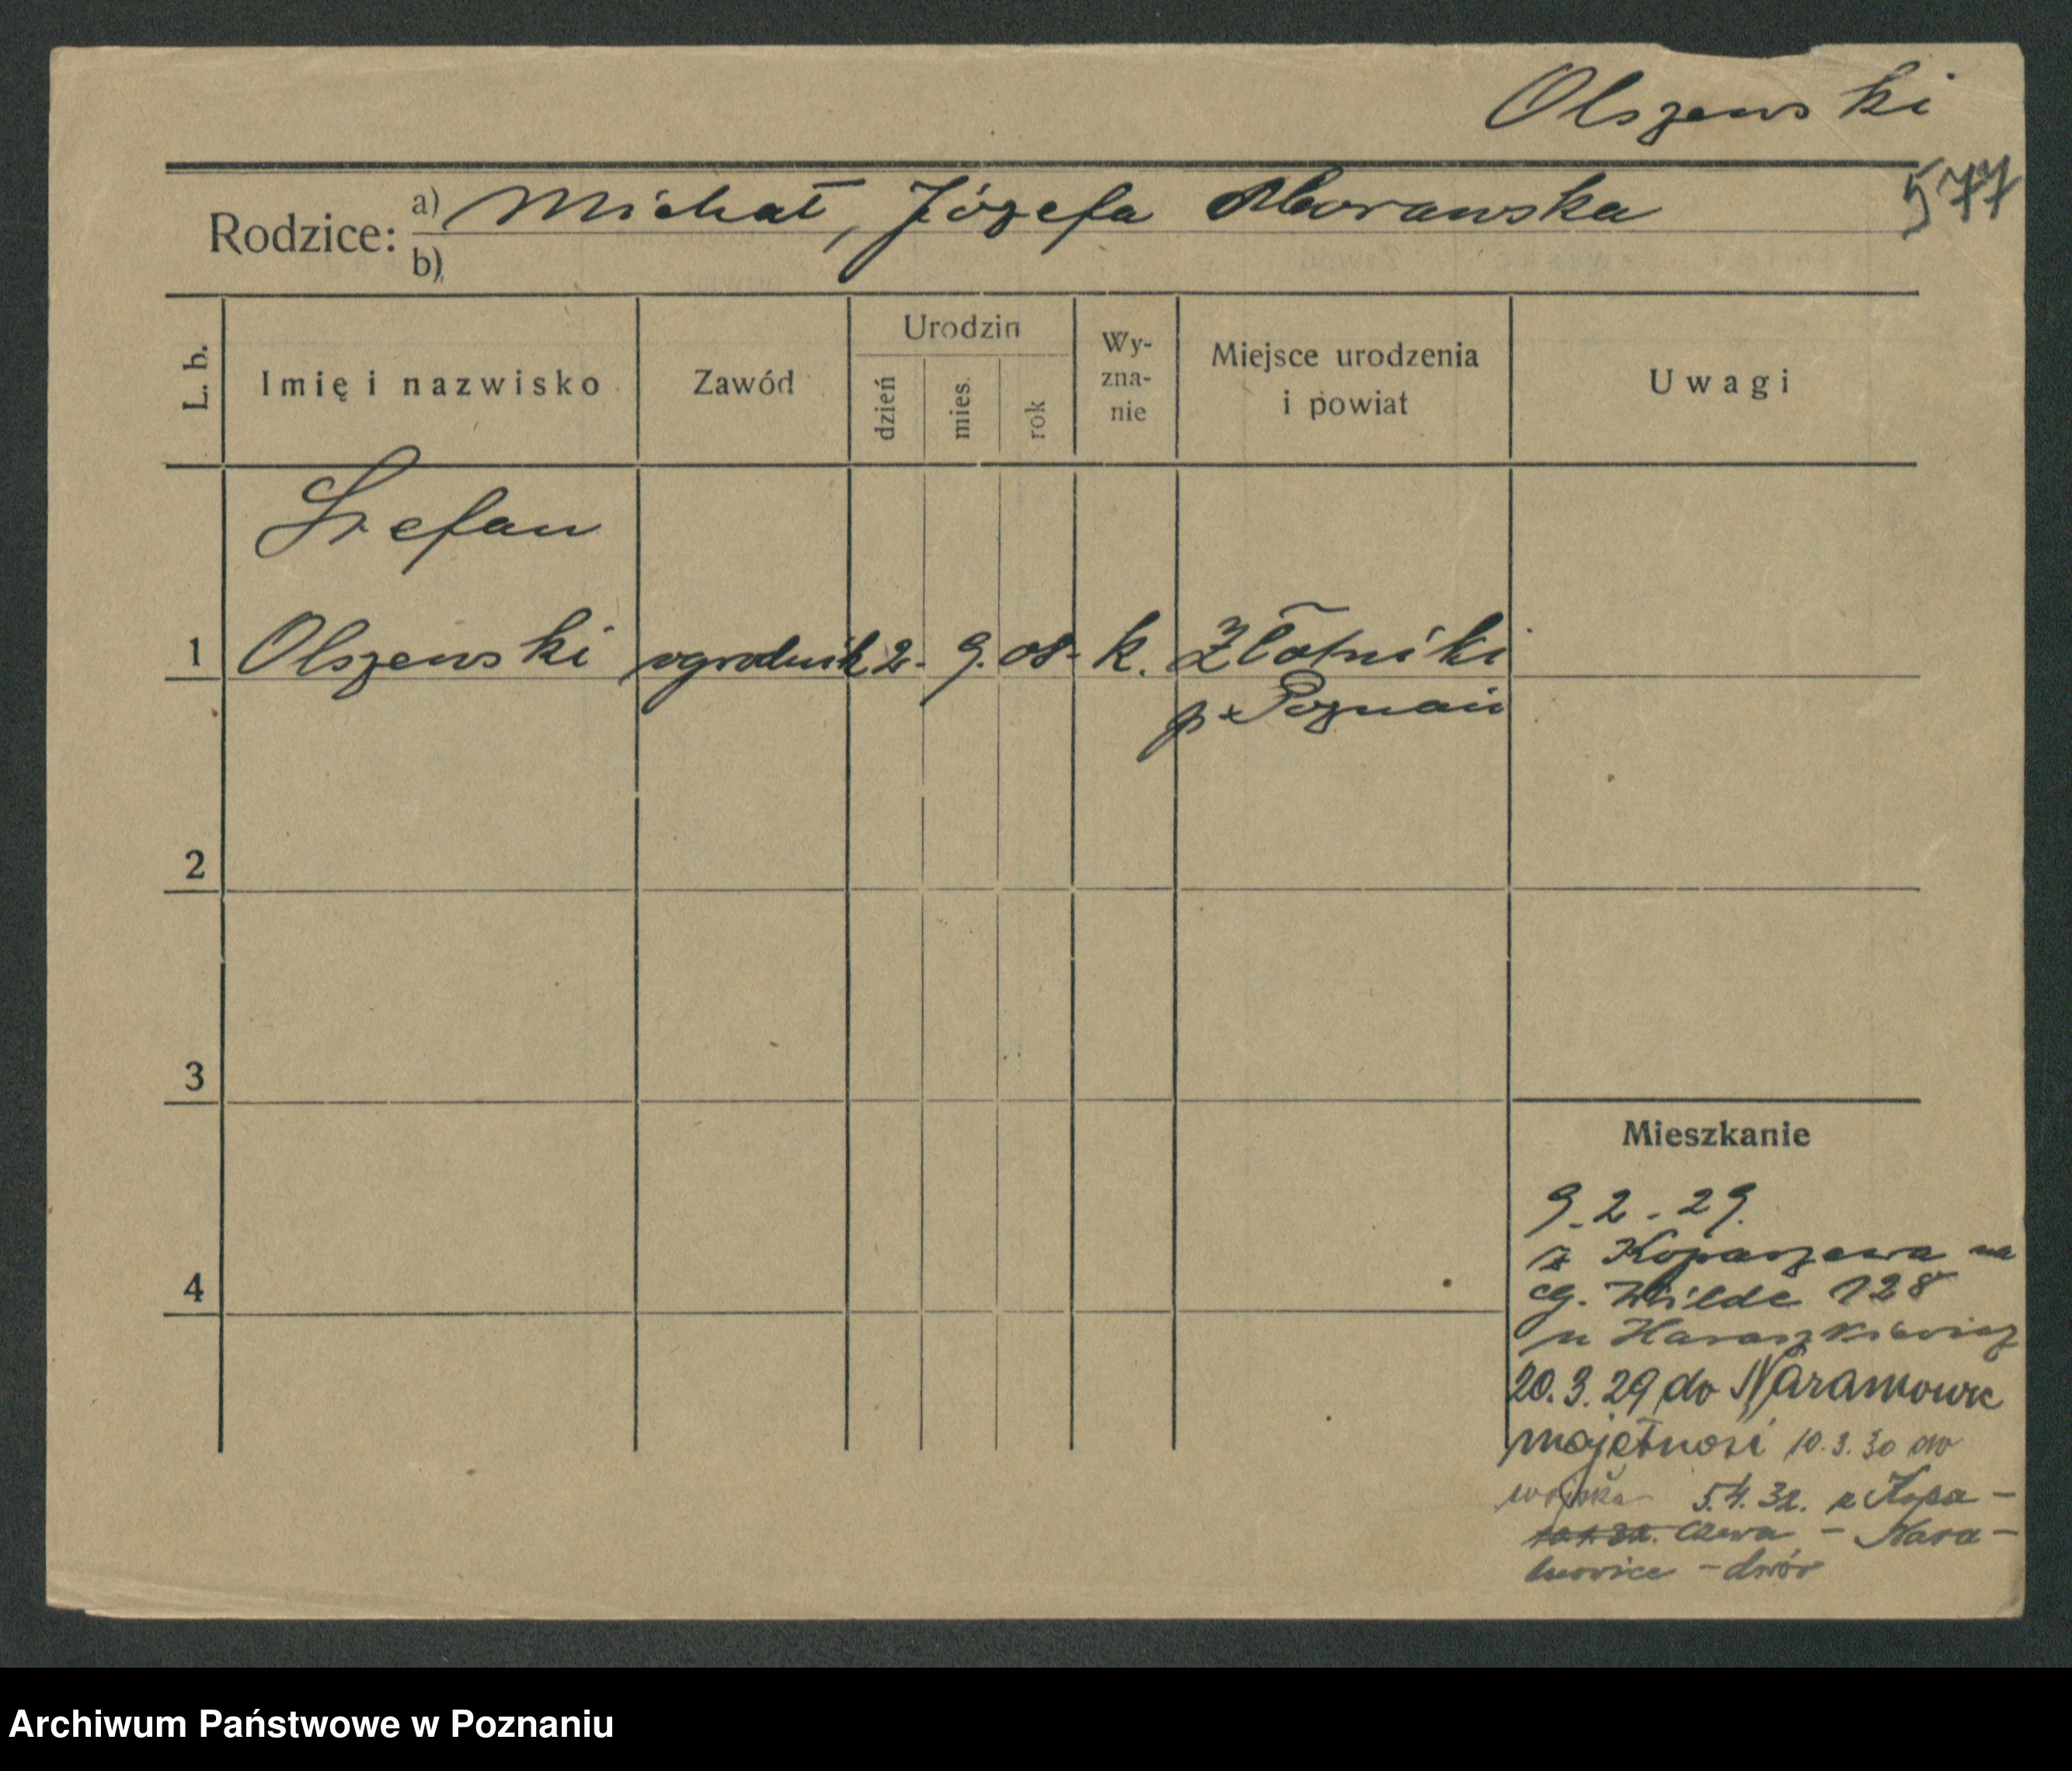 Olszewski
577
Rodzice: a) Michał, Józefa Morawska
b)
L. b. Imię i nazwisko Zawód Urodzin dzień mies. rok Wy-zna-nie Miejsce urodzenia i powiat Uwagi
Stefan
1 Olszewski ogrodnik 2. 9. 08. k. Złotniki
p. Poznań
2
3
Mieszkanie
9.2.29.
z Kopaszewa na
4
Wilde 128
u Haraszkiewicz
20.3.29 do Naramowic
majętność 10.3.30 do
wojska 5.4.32. z Kopa-
szewa - Nara-
mowice - dwór
Archiwum Państwowe w Poznaniu